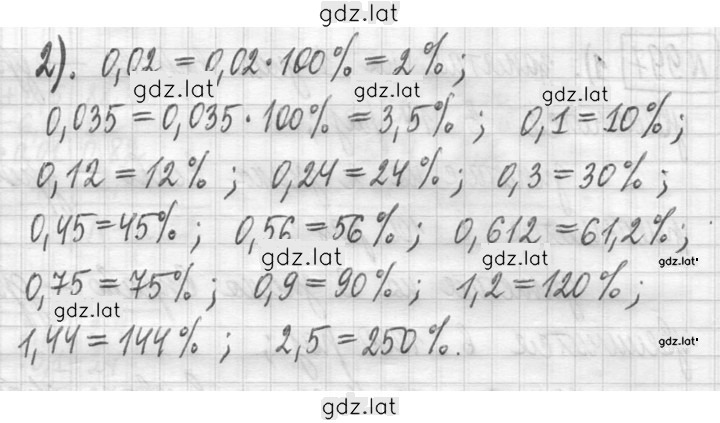 gdz.lat
2). 0,02 = 0,02·100% = 2%;
gdz.lat gdz.lat gdz.lat
0,035 = 0,035·100% = 3,5%; 0,1 = 10%;
0,12 = 12%; 0,24 = 24%; 0,3 = 30%;
0,45 = 45%; 0,56 = 56%; 0,612 = 61,2%;
gdz.lat gdz.lat gdz.lat
0,75 = 75%; 0,9 = 90%; 1,2 = 120%;
gdz.lat
1,44 = 144%; 2,5 = 250%.
gdz.lat
gdz.lat